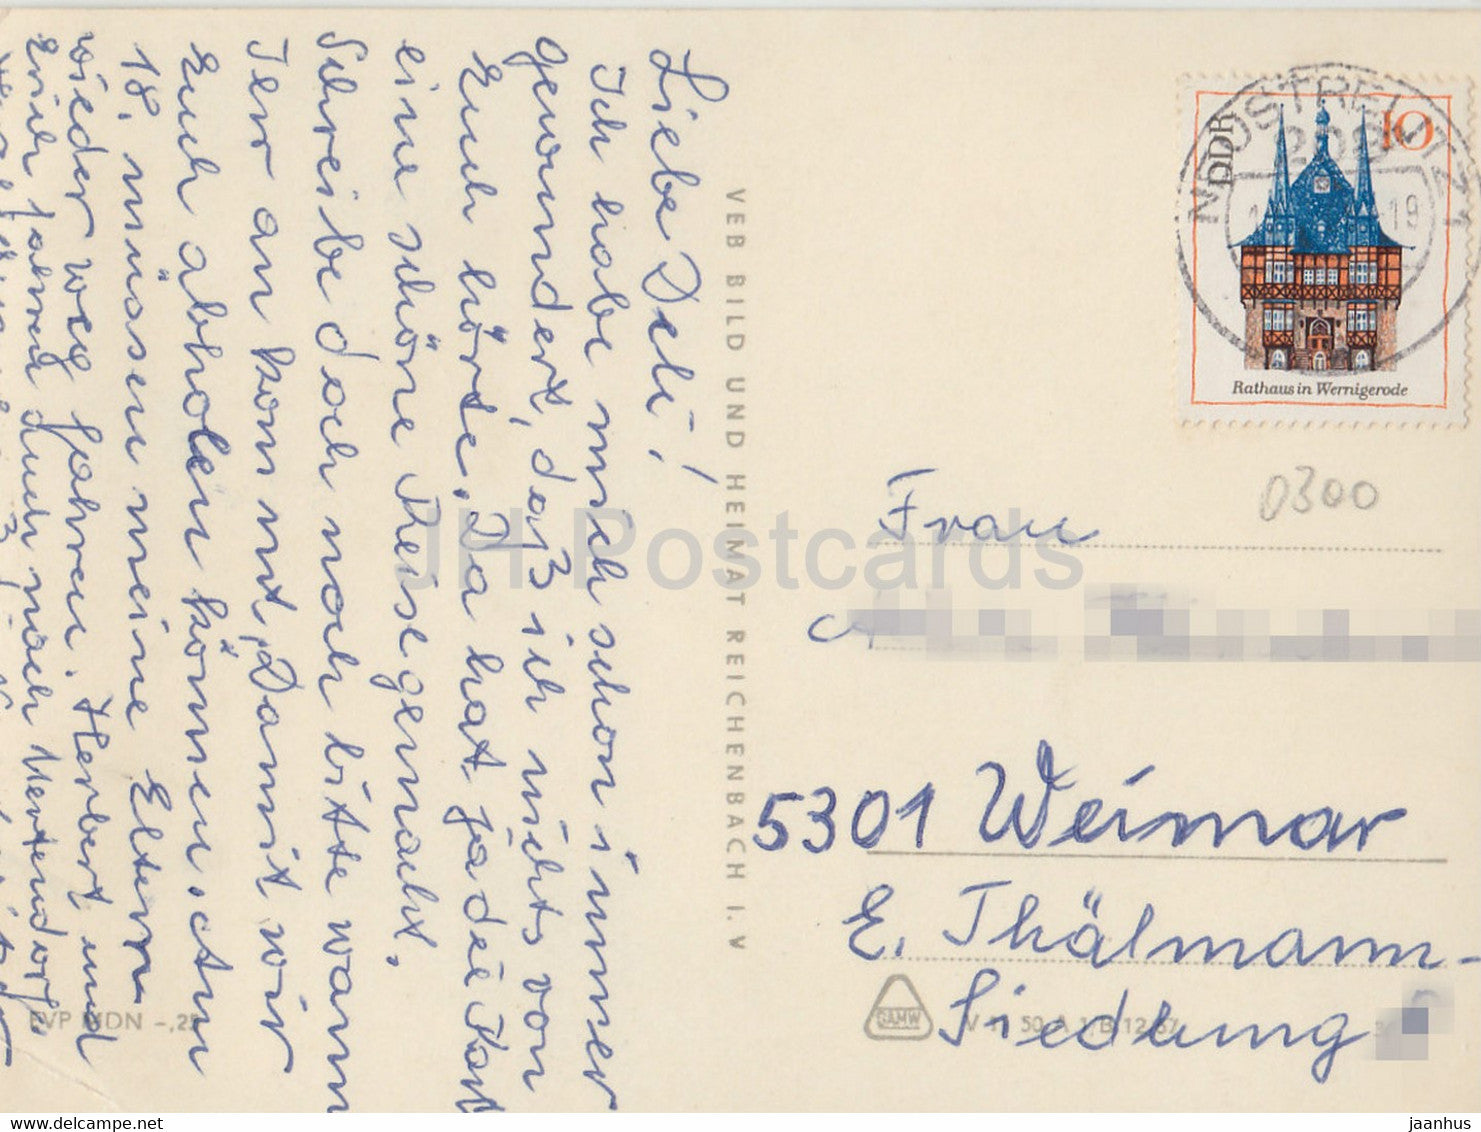 Liebe Deli!
Ich habe mich schon immer
gewundert, daß ich nichts von
Euch hörte. Da hat ja die
eine schöne Reise gemacht.
Schreibe doch noch bitte wann
Ier an kommt, Damit wir
Euch abholen können. Am
18. müssen meine Eltern
wieder weg fahren. Herbert und
VEB BILD UND HEIMAT REICHENBACH I. V
EVP MDN -,25
NEUSTRELITZ 1
208
-19
DDR
10
Rathaus in Wernigerode
0300
Frau
5301 Weimar
E. Thälmann-
Siedlung
V 11 50 A 1/B 12/67
JH Postcards
www.hippostcard.com
jaanhus